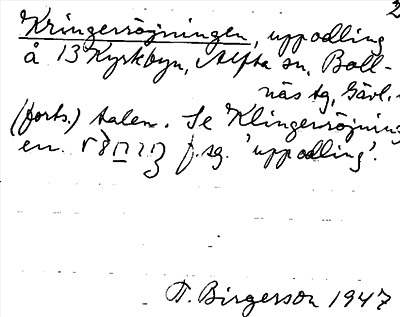 2
Kringersröjningen, uppodling
å 13 Kyrkbyn, Alfta sn, Boll-
näs tg, Gävl.
(forts.) talen. Se Klingersröjning
en. f.sg. 'uppodling'.
T. Birgerson 1947